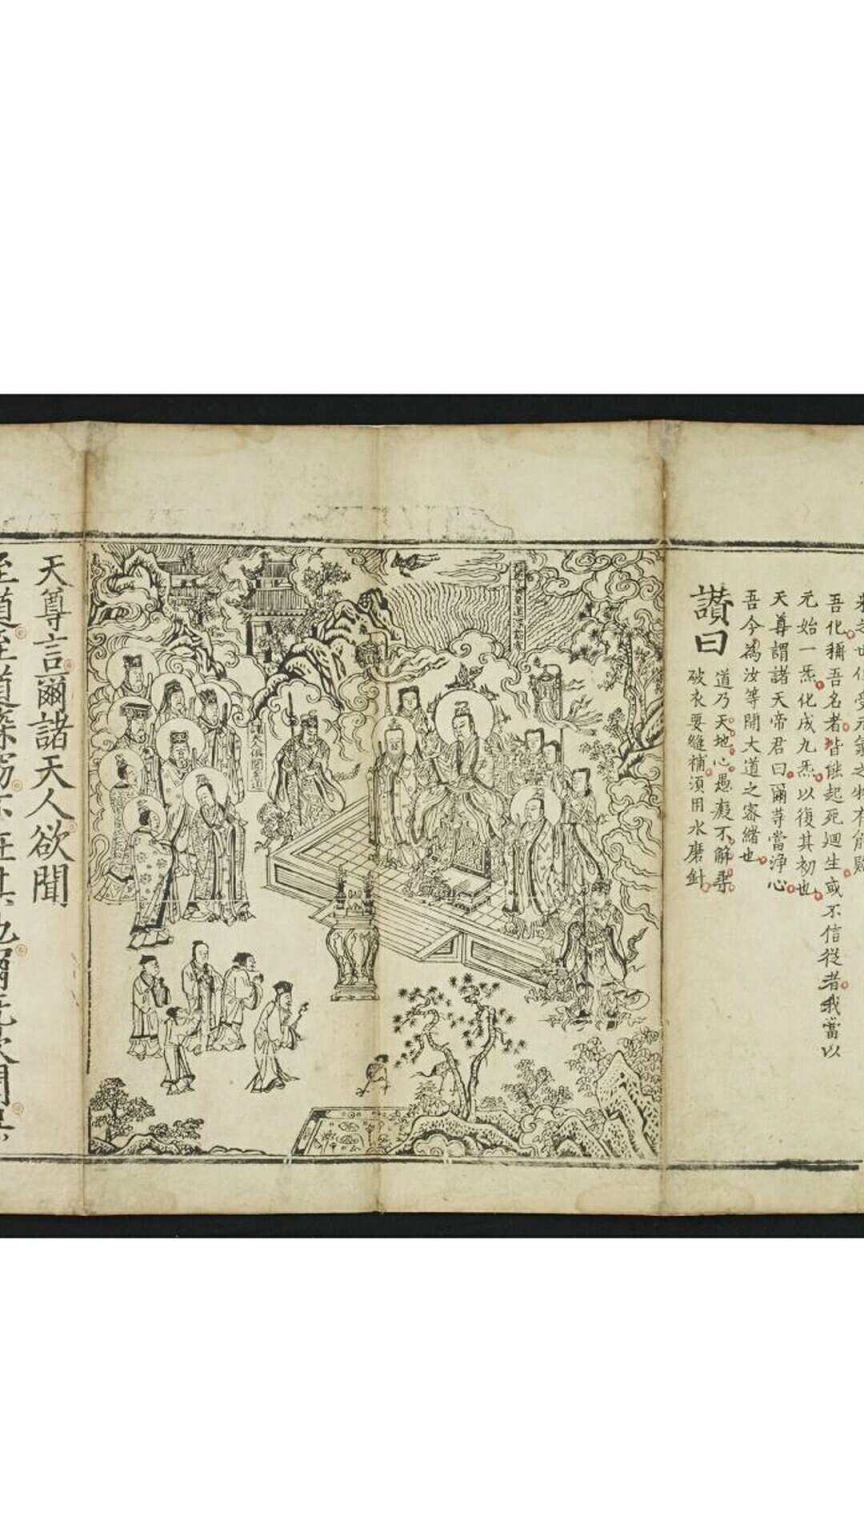 吾化稱吾名者皆能起死廻生或不信從者我當以
元始一炁化成九炁以復其初也
天尊謂諸天帝君曰爾等當淨心
吾今為汝等開大道之密緒也
讚曰
道乃天地心愚癡不解尋
破衣要縫補須用水磨針
天尊言爾諸天人欲聞
至道至道深窈不在其他爾既欲聞